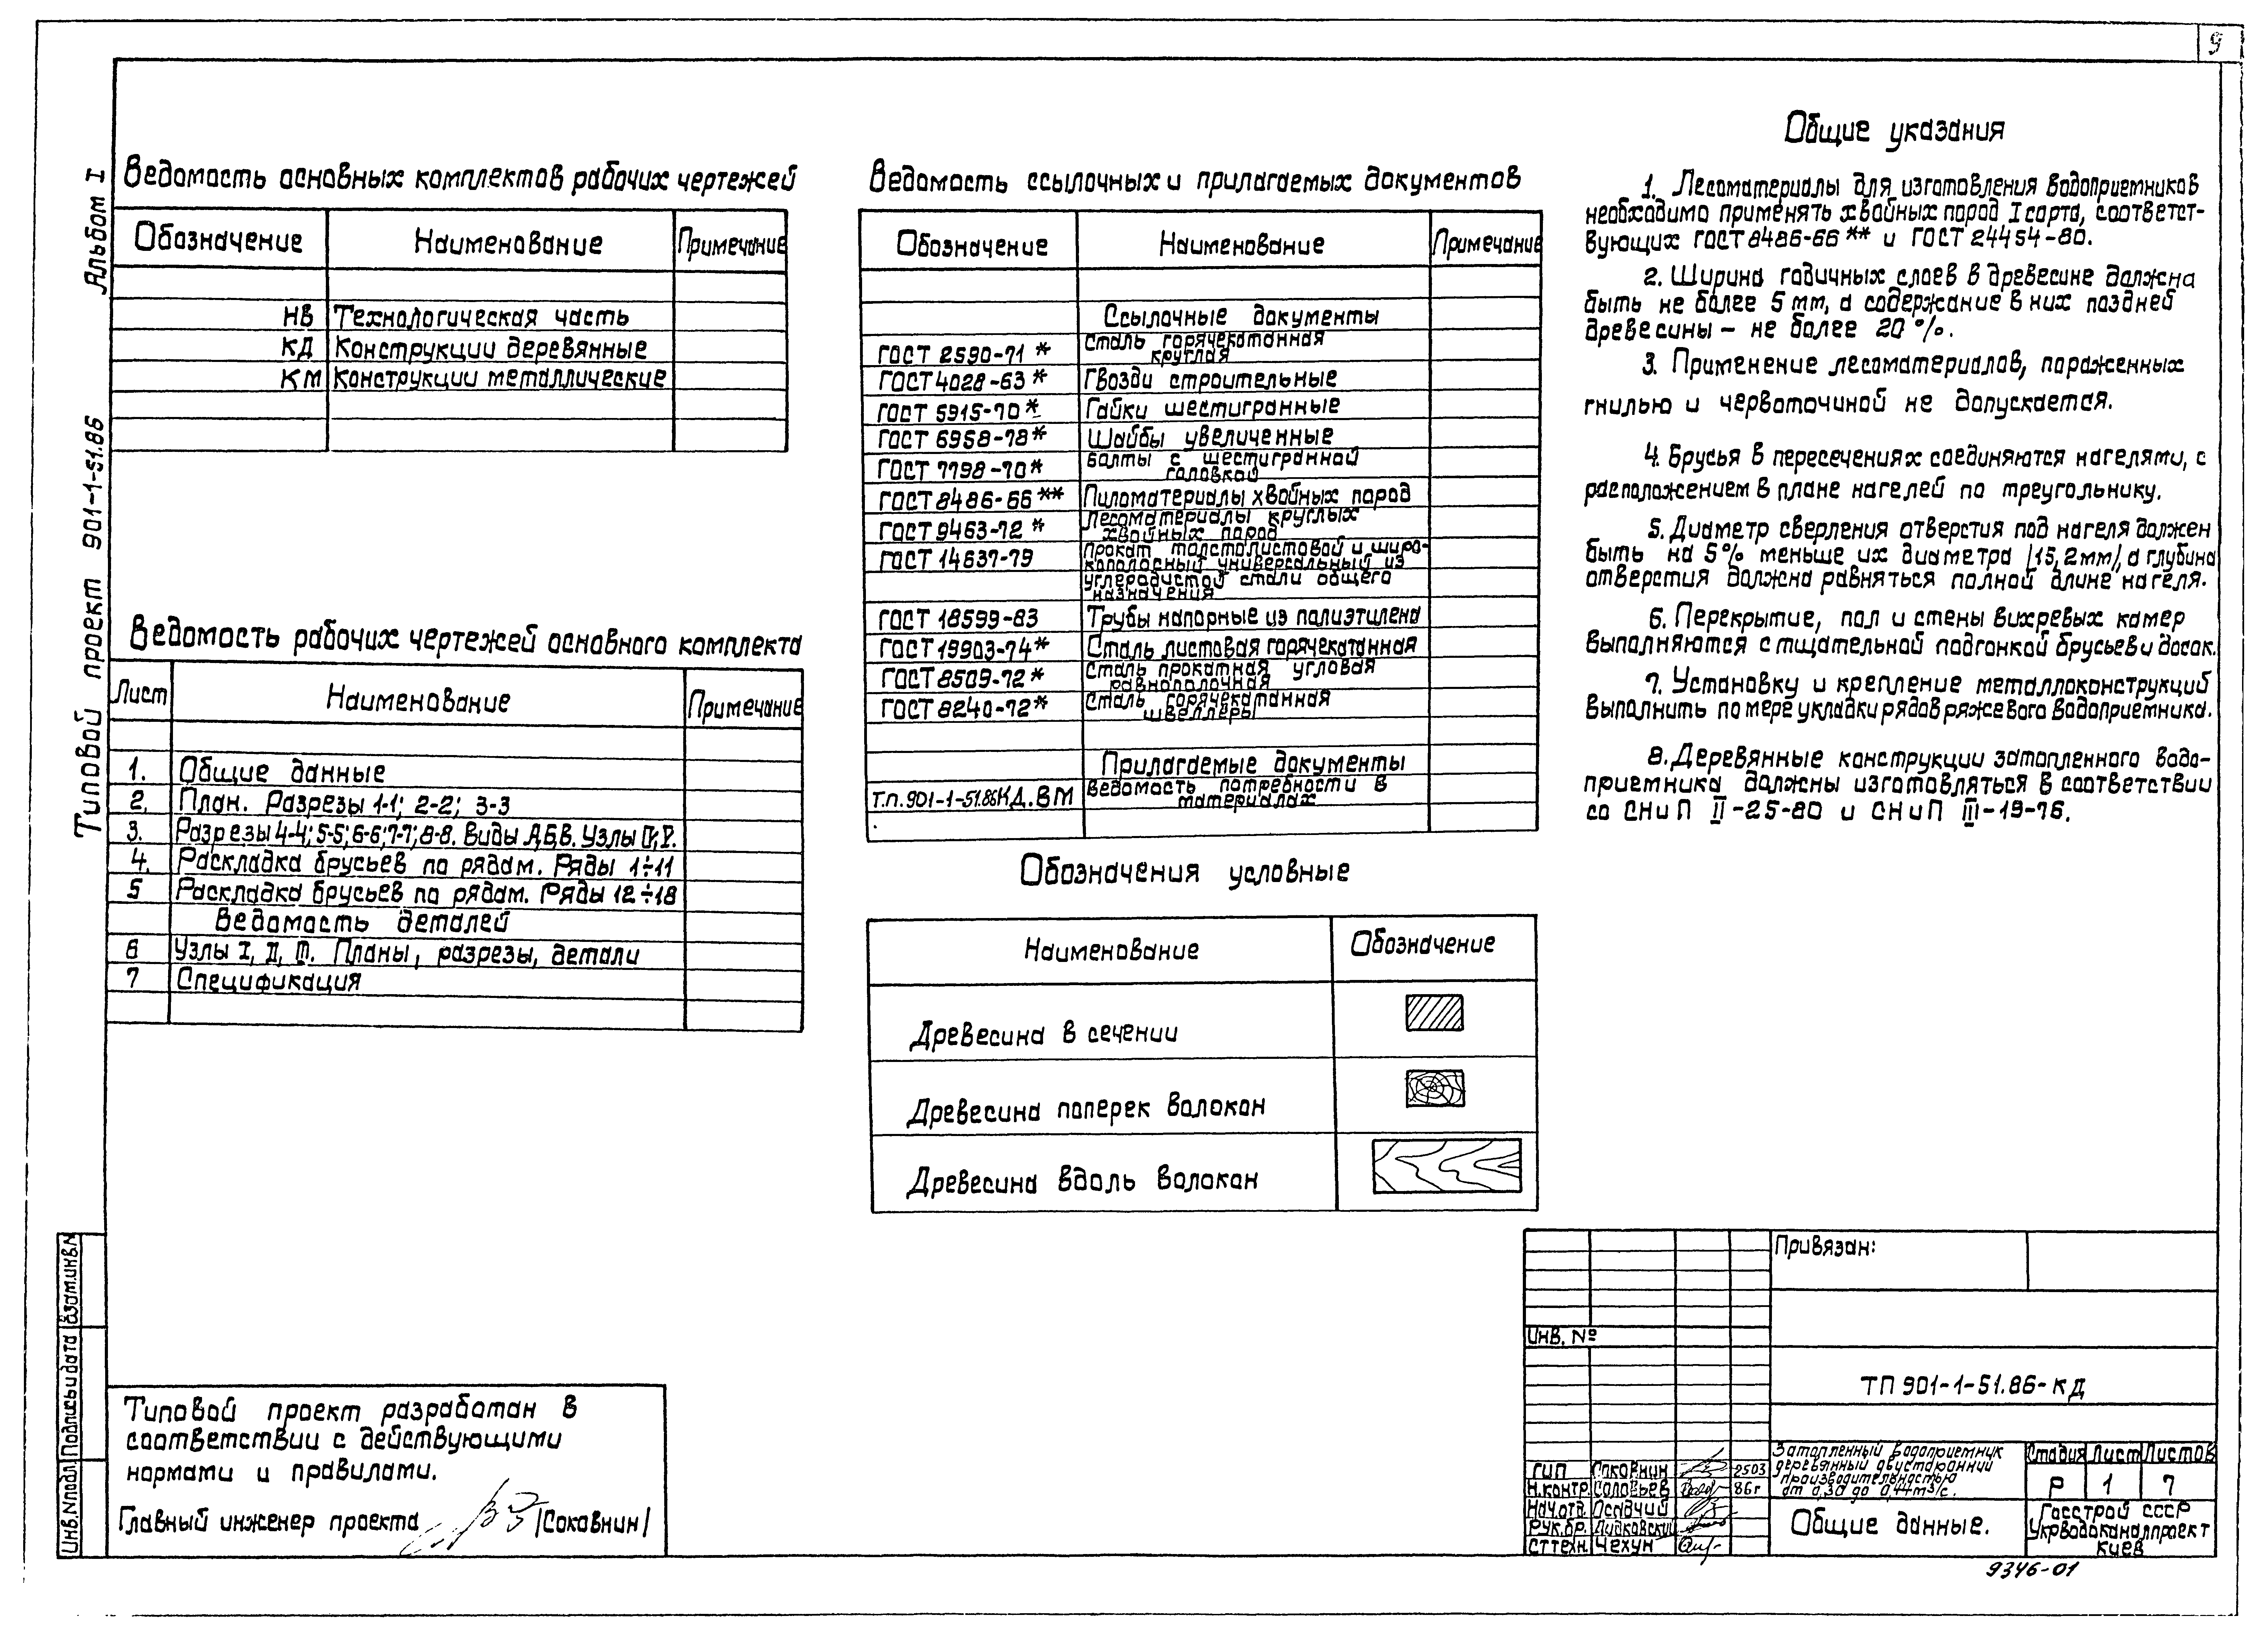 9
Альбом I
Типовой проект 901-1-51.86
Ведомость основных комплектов рабочих чертежей
Обозначение Наименование Примечание
НВ Технологическая часть
КД Конструкции деревянные
КМ Конструкции металлические
Ведомость рабочих чертежей основного комплекта
Лист Наименование Примечание
1. Общие данные
2. План. Разрезы 1-1; 2-2; 3-3
3. Разрезы 4-4; 5-5; 6-6; 7-7; 8-8. Виды А,Б,В. Узлы IV, V.
4. Раскладка брусьев по рядам. Ряды 1÷11
5 Раскладка брусьев по рядам. Ряды 12÷18
Ведомость деталей
6 Узлы I, II, III. Планы, разрезы, детали
7 Спецификация
Ведомость ссылочных и прилагаемых документов
Обозначение Наименование Примечание
Ссылочные документы
ГОСТ 2590-71* Сталь горячекатанная
круглая
ГОСТ 4028-63* Гвозди строительные
ГОСТ 5915-70* Гайки шестигранные
ГОСТ 6958-78* Шайбы увеличенные
ГОСТ 7798-70* Болты с шестигранной
головкой
ГОСТ 8486-66** Пиломатериалы хвойных пород
ГОСТ 9463-72* Лесоматериалы круглых
хвойных пород
ГОСТ 14637-79 Прокат толстолистовой и широ-
кополосный универсальный из
углеродистой стали общего
назначения
ГОСТ 18599-83 Трубы напорные из полиэтилена
ГОСТ 19903-74* Сталь листовая горячекатанная
ГОСТ 8509-72* Сталь прокатная угловая
равнополочная
ГОСТ 8240-72* Сталь горячекатанная
швеллеры
Прилагаемые документы
Т.п.901-1-51.86КД.ВМ Ведомость потребности в
материалах
Обозначения условные
Наименование Обозначение
Древесина в сечении
Древесина поперек волокон
Древесина вдоль волокон
Общие указания
1. Лесоматериалы для изготовления водоприемников
необходимо применять хвойных пород I сорта, соответст-
вующих ГОСТ 8486-66** и ГОСТ 24454-80.
2. Ширина годичных слоев в древесине должна
быть не более 5 мм, а содержание в них поздней
древесины - не более 20%.
3. Применение лесоматериалов, пораженных
гнилью и червоточиной не допускается.
4. Брусья в пересечениях соединяются нагелями, с
расположением в плане нагелей по треугольнику.
5. Диаметр сверления отверстия под нагеля должен
быть на 5% меньше их диаметра /15,2мм/, а глубина
отверстия должна равняться полной длине нагеля.
6. Перекрытие, пол и стены вихревых камер
выполняются с тщательной подгонкой брусьев и досок.
7. Установку и крепление металлоконструкций
выполнить по мере укладки рядов ряжевого водоприемника.
8. Деревянные конструкции затопленного водо-
приемника должны изготовляться в соответствии
со СНиП II-25-80 и СНиП III-19-76.
Типовой проект разработан в
соответствии с действующими
нормами и правилами.
Главный инженер проекта /Соковнин/
Инв.Nподл. Подпись и дата Взам.инв.N
Привязан:
Инв. №
ТП 901-1-51.86-КД
ГИП Соковнин 2503
Н.контр. Соловьев 86г
Нач.отд. Осадчий
Рук.бр. Лидковский
Ст техн. Чехун
Затопленный водоприемник
деревянный двусторонний
производительностью
от 0,30 до 0,44м³/с.
Стадия Лист Листов
Р 1 7
Общие данные.
Госстрой СССР
Укрводоканалпроект
Киев
9346-01